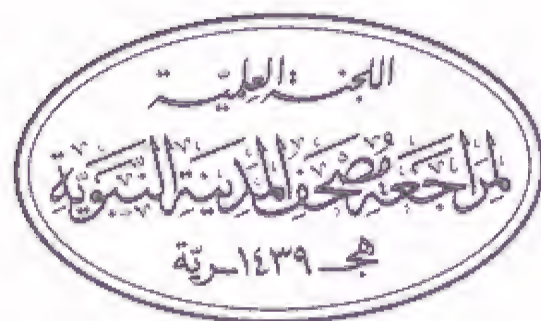 اللجنة العلمية
لمراجعة مصحف المدينة النبوية
هجـ ١٤٣٩ ـرية